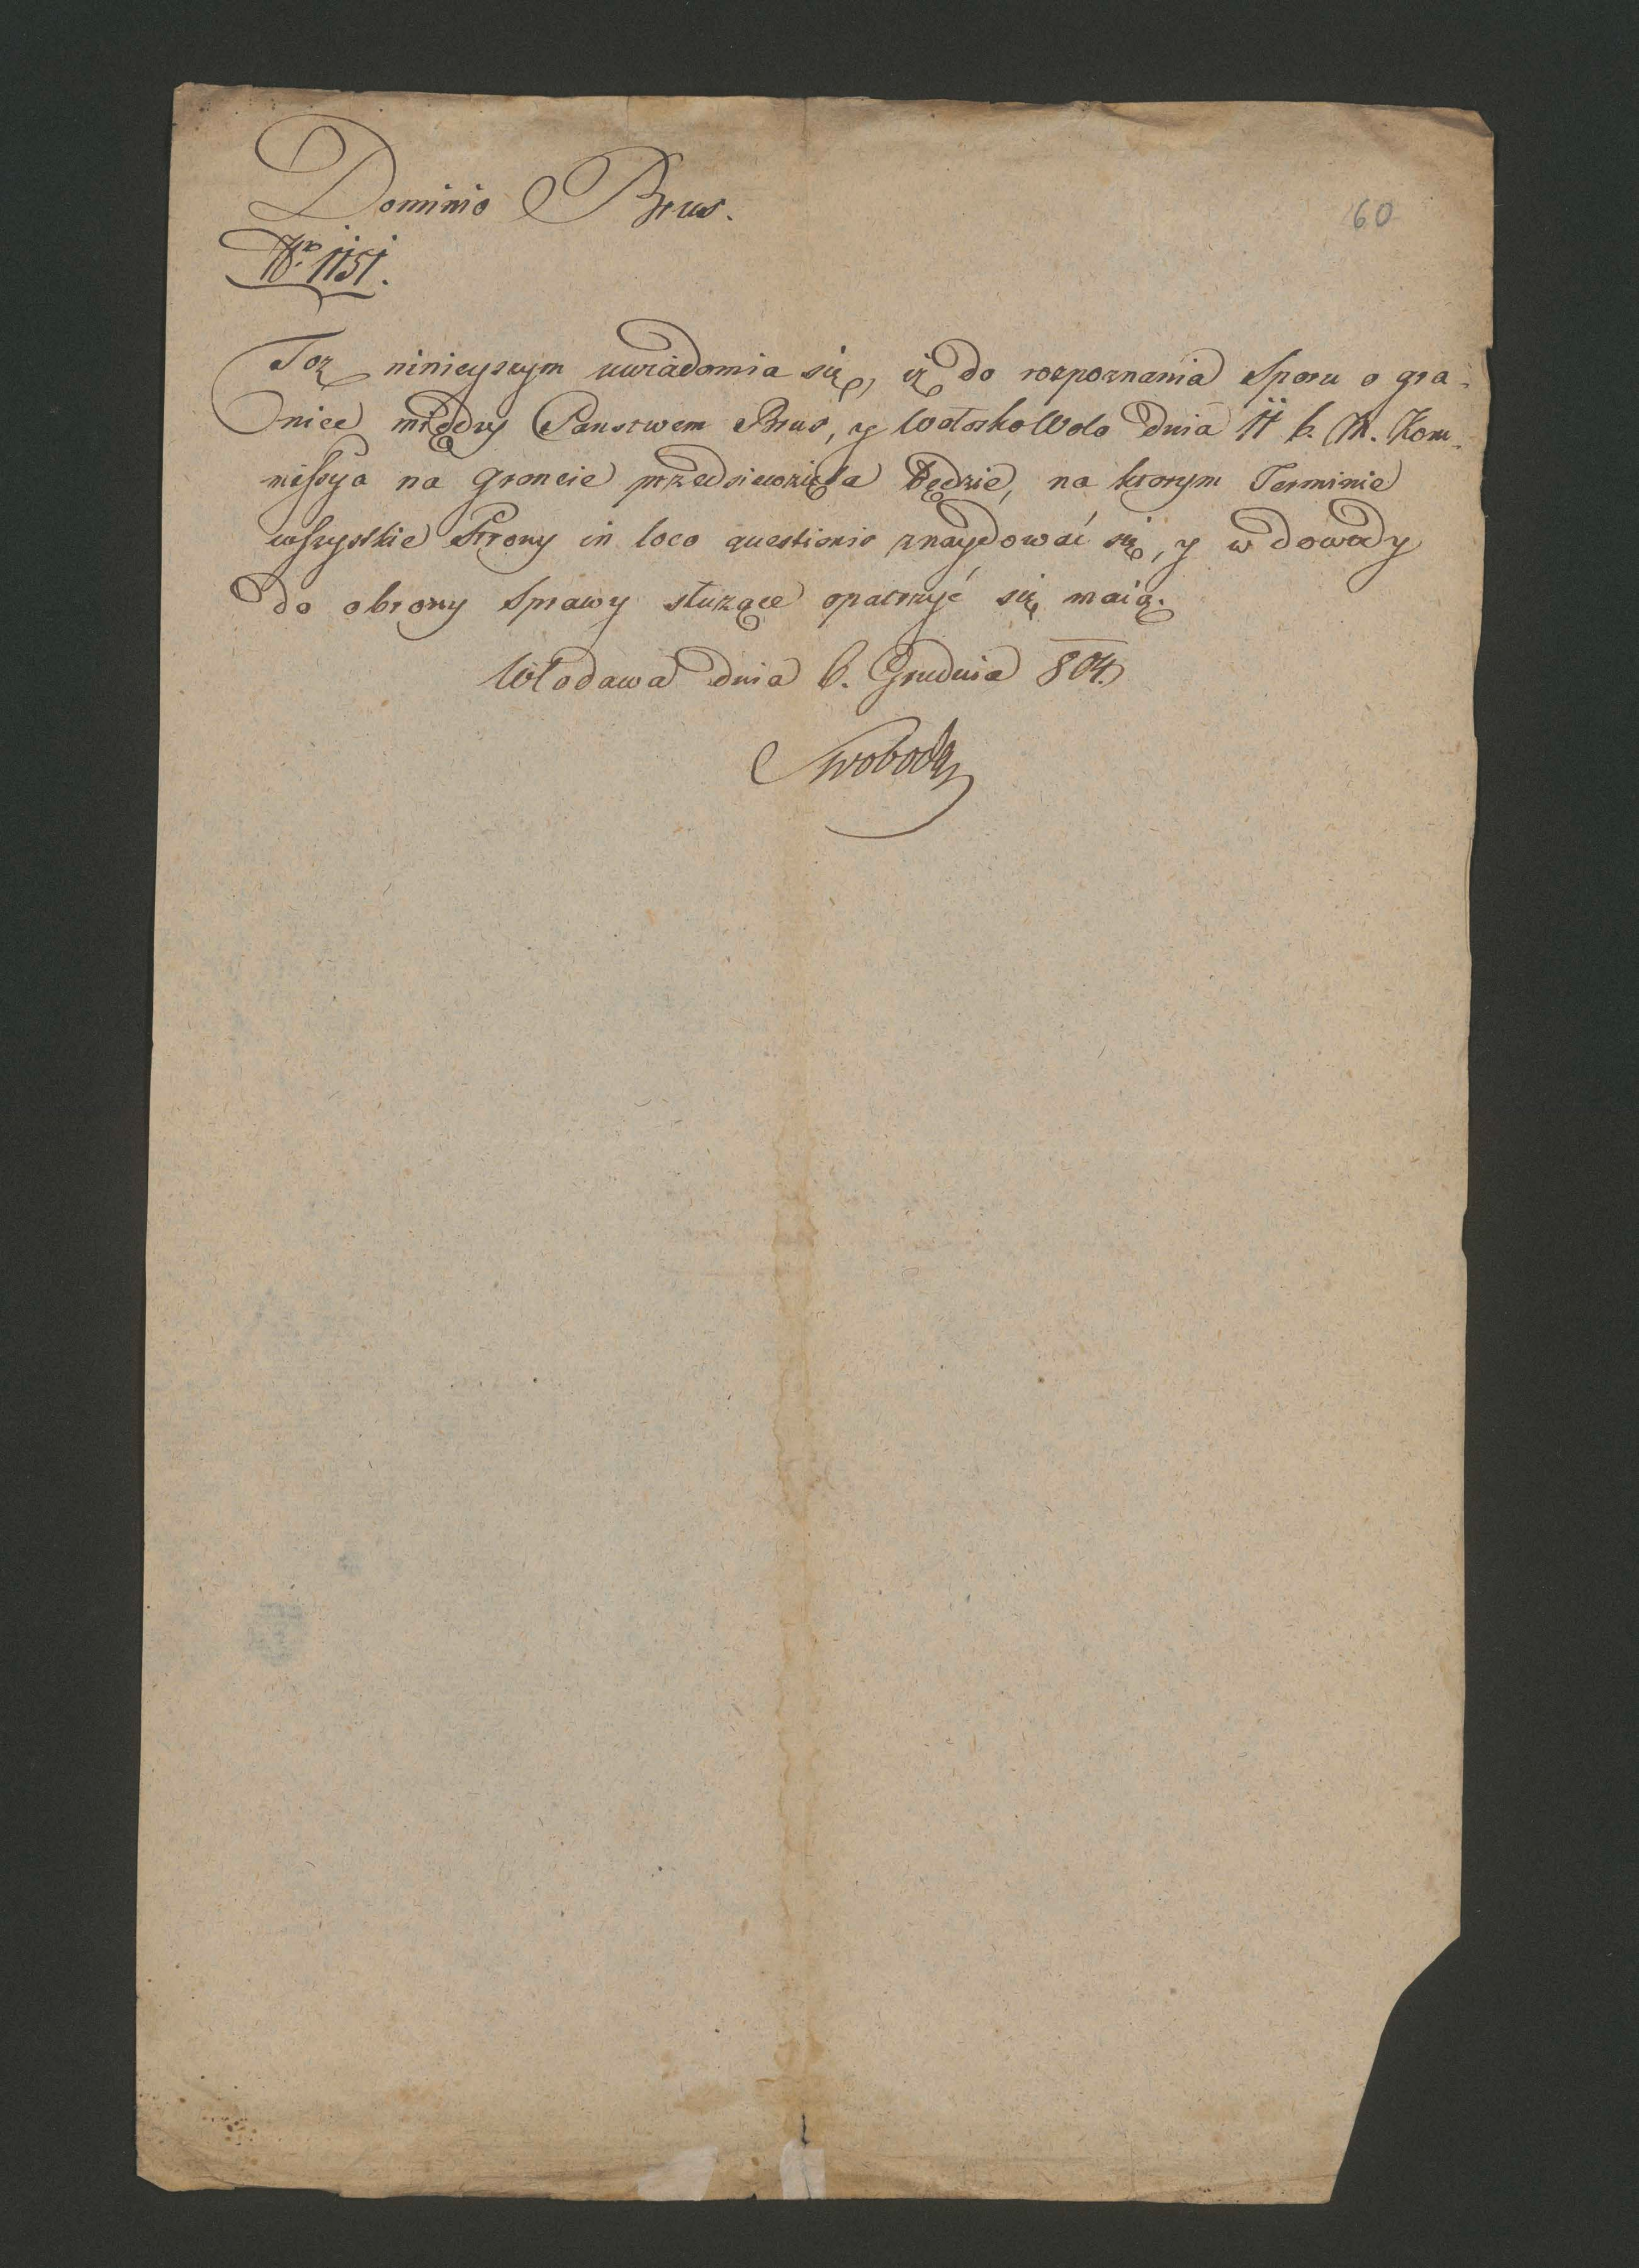 Dominio Brus.
60
Nro 1151.
Toż ninieyszym uwiadomia się, iż do rozpoznania Sporu o gra-
nice między Państwem Brus, y Wołosko Wolo dnia 11 b. M. Kom-
missya na groncie przedsiewzięta będzie, na ktorym Terminie
wszystkie Strony in loco questionis znaydować się, y w dowody
do obrony Sprawy służące opatrzyć się maią.
Włodawa dnia 6. Grudnia 804.
Swoboda